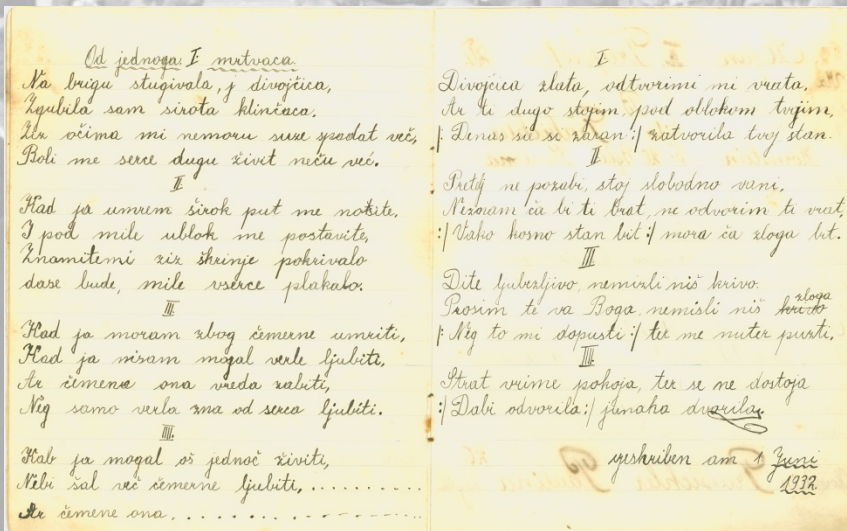 Od jednoga I mrtvaca
Na brigu stugivala, j divojčica,
Zgubila sam sirota klinčaca.
Ziz očima mi nemoru suze spadat već,
Boli me serce dugu živit neću već.
II
Kad ja umrem širok put me nosite,
I pod mile ublok me postavite,
Znamitemi ziz škrinje pokrivalo
dase bude, mile vserce plakalo.
III.
Kad ja moram zbog čemerne umriti,
Kad ja nisam mogal verle ljubiti,
Ar čemena ona vreda zabiti,
Neg samo verla zna od serca ljubiti.
IIII.
Kab ja mogal oš jednoč živiti,
Nebi šal već čemerne ljubiti, ..........
Ar čemene ona. .....................
I
Divojčica zlata, odtvorimi mi vrata,
Ar ti dugo stojim, pod oblokom tvojim,
|: Denas sa si zaran :| zatvorila tvoj stan.
II
Pretelj ne pozabi, stoj slobodno vani,
Neznam ča bi ti brat, ne odvorim ti vrat,
:| Vako kosno stan bit :| mora ča zloga bit.
III
Dite ljubezljivo, nemisli niš krivo.
Prosim te va Boga, nemisli niš krivo zloga
|: Neg to mi dopusti :| ter me nuter pusti,
IIII
Strat vrime pokoja, ter se ne dostoja
:| Dabi odvorila :| junaka dvorila.
geskriben am 1 Juni
1932